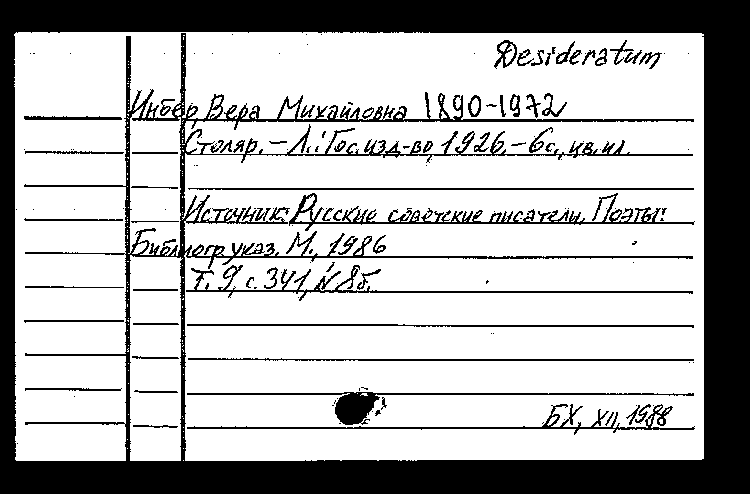 Desideratum
Инбер, Вера Михайловна 1890-1972
Столяр. - Л.: Гос. изд-во, 1926. - 6с., цв. ил.
Источник: Русские советские писатели. Поэты:
Библиогр. указ. М., 1986
Т. 9, с. 341, № 85.
БХ, XII, 1988